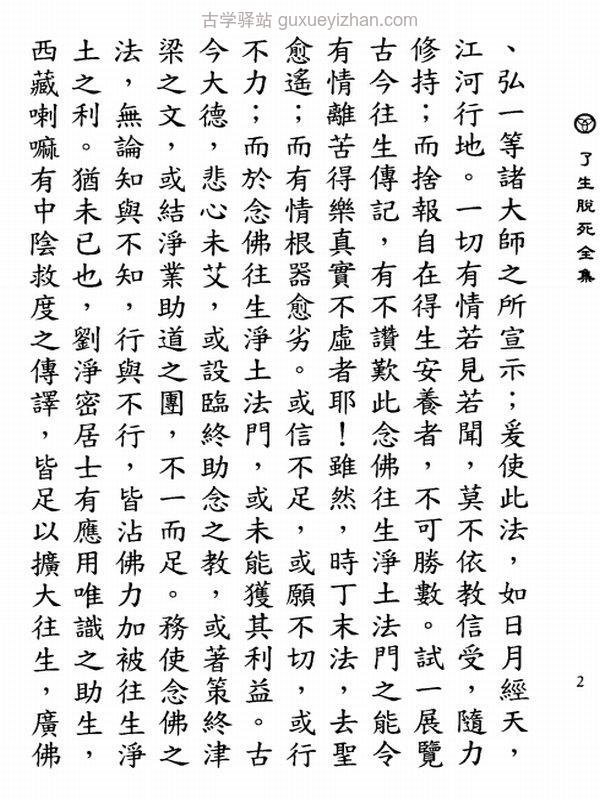 古学驿站 guxueyizhan.com
了生脫死全集
、弘一等諸大師之所宣示；爰使此法，如日月經天，
江河行地。一切有情若見若聞，莫不依教信受，隨力
修持；而捨報自在得生安養者，不可勝數。試一展覽
古今往生傳記，有不讚歎此念佛往生淨土法門之能令
有情離苦得樂真實不虛者耶！雖然，時丁末法，去聖
愈遙；而有情根器愈劣。或信不足，或願不切，或行
不力；而於念佛往生淨土法門，或未能獲其利益。古
今大德，悲心未艾，或設臨終助念之教，或著策終津
梁之文，或結淨業助道之團，不一而足。務使念佛之
法，無論知與不知，行與不行，皆沾佛力加被往生淨
土之利。猶未已也，劉淨密居士有應用唯識之助生，
西藏喇嘛有中陰救度之傳譯，皆足以擴大往生，廣佛
2